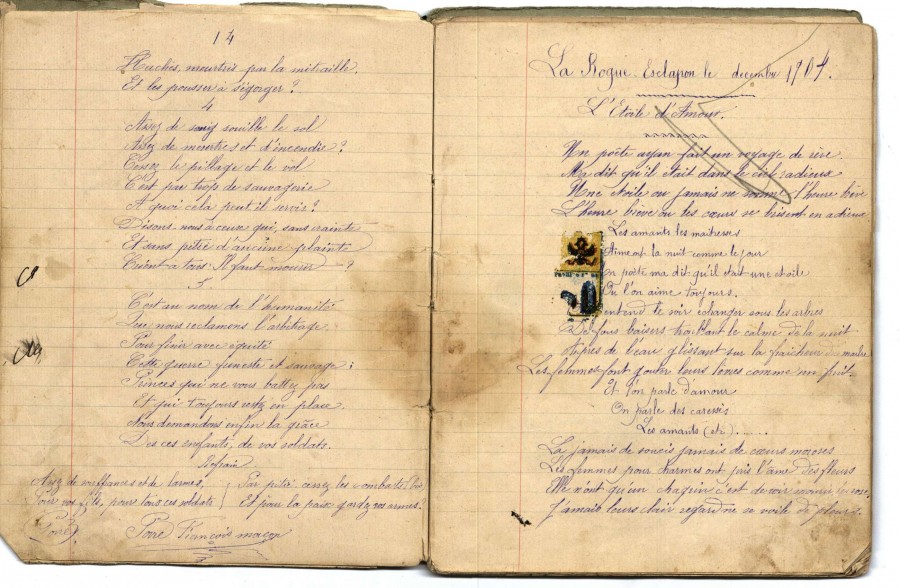 14
Hachés, meurtris par la mitraille.
Et les pousser à s'égorger?
4
Assez de sang souille le sol
Assez de meurtres et d'incendie?
Cessez le pillage et le vol
C'est par trop de sauvagerie
A quoi cela peut il servir?
Disons nous à ceux qui, sans crainte
Et sans pitié d'aucune plainte
Crient à tous Il faut mourir ?
5
C'est au nom de l'humanité
Que nous réclamons l'arbitage.
Pour finir avec équité
Cette guerre funeste et sauvage;
Princes qui ne vous battez pas
Et qui toujours restez en place.
Nous demandons enfin la grâce
De ces enfants, de vos soldats.
Refrain
Assez de souffrances et de larmes,
Pour vos fils, pour tous ces soldats
Par pitié cessez les combats
Et pour la paix gardez vos armes?
Poire François maçon
La Rogue Esclapon le decembre 1904.
L'Etoile d'Amour.
Un poète ayan fait un voyage de rêve
M'a dit qu'il etait dans le ciel radieux
Une etoile ou jamais ne sonne l'heure brève
L'heure biève ou les cœurs se brisent en adieux
Les amants les maitresses
Aiment la nuit comme le jour
Un poète ma dit qu'il etait une etoile
Ou l'on aime toujours.
entend le soir echanger sous les arbres
De fous baisers troublant le calme de la nuit
Aupres de l'eau glissant sur la fraicheur du marbre
Les femmes font gouter leurs lèvres comme un fruit
Et l'on parle d'amour
On parle des caresses
Les amants (etc) ......
La jamais de soucis jamais de cœurs moroses
Les femmes pour charmes ont pris l'âme des fleurs
Elle n'ont qu'un chagrin c'est de voir mourir les roses
Jamais leurs clair regard ne se voile de pleurs.